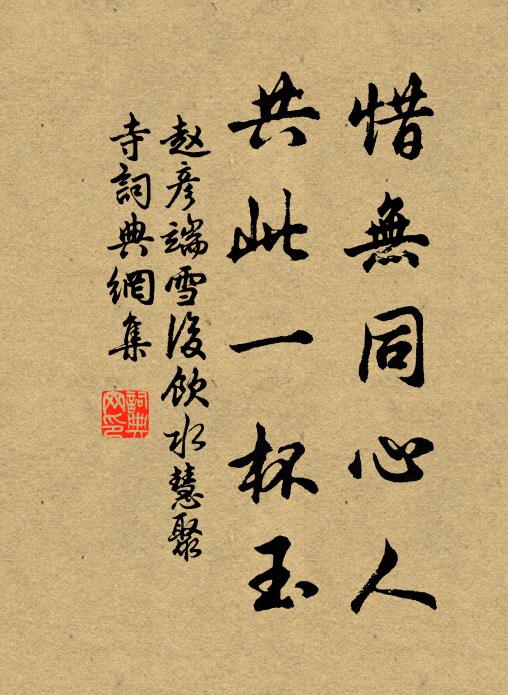 惜無同心人
共此一杯玉
赵彦端雪後飲水慧聚
寺詞典網集
詞典網印